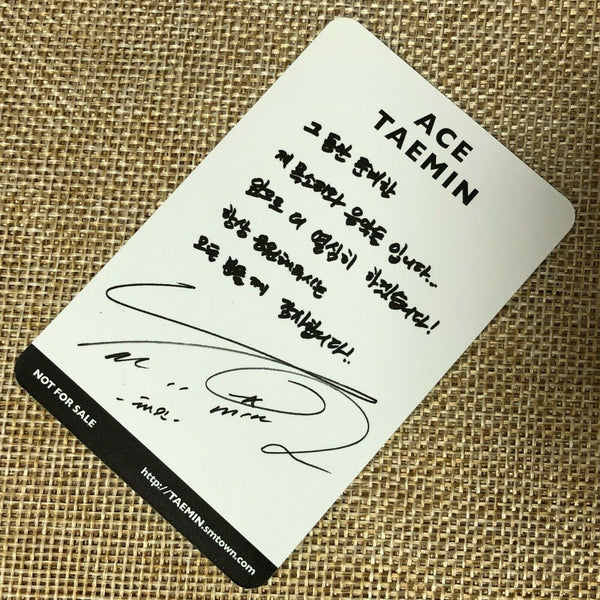 ACE
TAEMIN
그동안 준비한
제 목소리와 음악들 입니다..
앞으로 더 열심히 하겠습니다!
항상 응원해주시는
모든 분들께 감사합니다!.
태민
NOT FOR SALE
http://TAEMIN.smtown.com